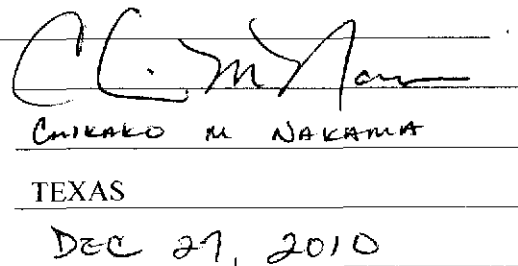 CHIKAKO M NAKAMA
TEXAS
DEC 27, 2010